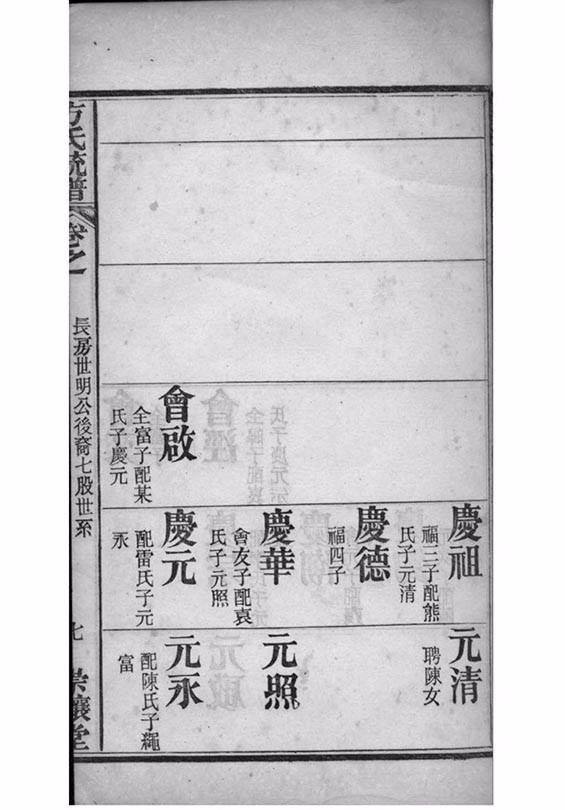 慶祖
福三子配熊
氏子元清
慶德
福四子
慶華
會友子配袁
氏子元照
會啟
全富子配某
氏子慶元
慶元
配雷氏子元
永
元清
聘陳女
元照
元永
配陳氏子繩
富
方氏統譜
卷之一
長房世明公後裔七股世系
七